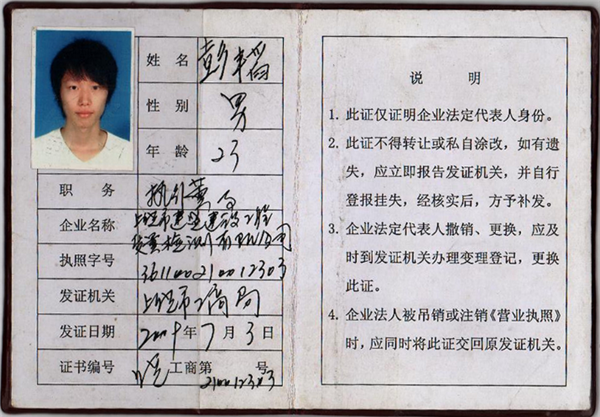 姓名 彭韬
性别 男
年龄 23
职务 执行董事
企业名称 上饶市建设工程
质量检测有限公司
执照字号 361100210012303
发证机关 上饶市工商局
发证日期 2009年7月3日
证书编号 饶工商第210012303号
说 明
1. 此证仅证明企业法定代表人身份。
2. 此证不得转让或私自涂改，如有遗
失，应立即报告发证机关，并自行
登报挂失，经核实后，方予补发。
3. 企业法定代表人撤销、更换，应及
时到发证机关办理变理登记，更换
此证。
4. 企业法人被吊销或注销《营业执照》
时，应同时将此证交回原发证机关。